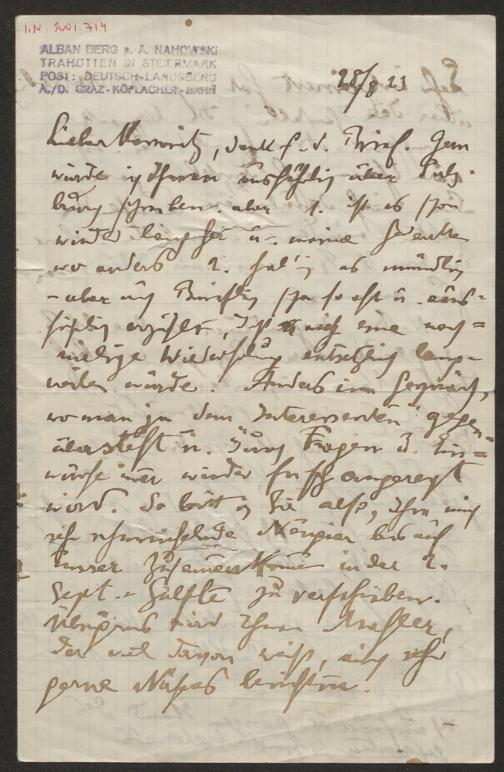 I.N. 201.714
ALBAN BERG p. A. NAHOWSKI
TRAHÜTTEN IN STEIERMARK
POST: DEUTSCH-LANDSBERG
A./D. GRAZ-KÖFLACHER-BAHN
28/8 23
Lieber, Dank f. d. Brief. Gern
würde ich Ihnen ausführlich über Salz-
burg schreiben. aber 1. ist es schon
wieder lang her u. meine Gedanken
wo anders 2. hab' ich es mündlich
- aber auch brieflich schon so oft u. aus-
führlich erzählt, daß mich eine noch=
malige Wiederholung entsetzlich lang-
weilen würde. Anders im Gespräch,
wo man ja dem Interessenten gegen=
übersteht u. durch Fragen u. Ein=
würfe immer wieder frisch angeregt
wird. So bitt' ich Sie also, Ihre mich
sehr schmeichelnde Neugier bis auf
unser Zusammenkommen in der 2.
Sept.-Hälfte zu verschieben.
Übrigens wird Ihnen
der viel davon weiß, auch sehr
gerne Näheres berichten.